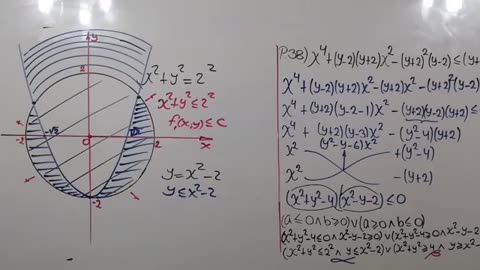 y
2
x²+y²=2²
x²+y²≤2²
f(x,y)≤c
-2 -√2 0 √2 2
x
y=x²-2
y≤x²-2
-2
P38) x⁴+(y-2)(y+2)x²-(y+2)²(y-2)≤(y+
x⁴+(y-2)(y+2)x²-(y+2)x²-(y+2)²(y-2)
x⁴+(y+2)(y-2-1)x²-(y+2)(y-2)(y+2)≤
x⁴+(y+2)(y-3)x²-(y²-4)(y+2)
(y²-y-6)x²
x² +(y²-4)
x² -(y+2)
(x²+y²-4)(x²-y-2)≤0
(a≤0∧b≥0)∨(a≥0∧b≤0)
(x²+y²-4≤0∧x²-y-2≥0)∨(x²+y²-4≥0∧x²-y-2
(x²+y²≤2²∧y≤x²-2)∨(x²+y²≥4∧y≥x²-